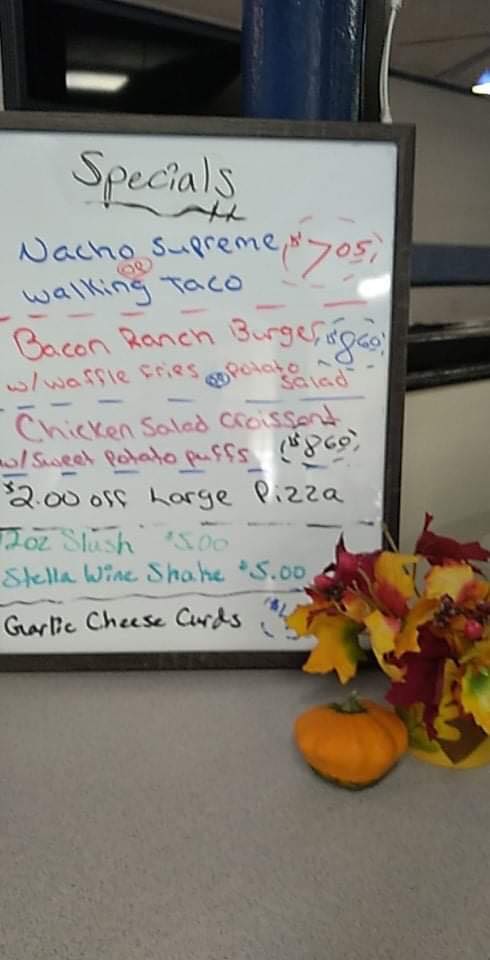 Specials
Nacho Supreme $7.05
or
Walking Taco
Bacon Ranch Burger $8.60
w/waffle fries or potato salad
Chicken Salad Croissant
w/Sweet Potato puffs $8.60
$2.00 off Large Pizza
12oz Slush $5.00
Stella Wine Shake $5.00
Garlic Cheese Curds